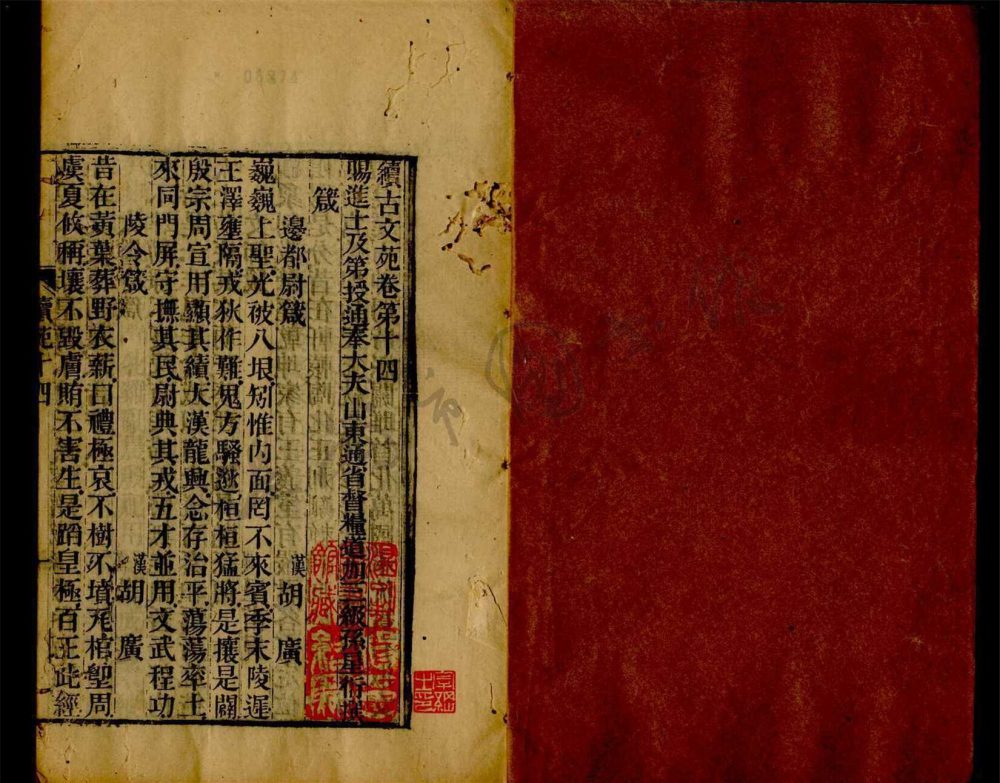 續古文苑卷第十四
賜進士及第授通奉大夫山東通省督糧道加三級孫星衍撰
箴
邊都尉箴 漢 胡廣
巍巍上聖光被八垠矧惟內面罔不來賓季末陵遲
王澤壅隔戎狄作難鬼方騷逖桓桓猛將是攘是闢
殷宗周宣用顯其績大漢龍興念存治平蕩蕩率土
來同門屏守撫其民尉典其戎五才並用文武程功
陵令箴 漢 胡廣
昔在黃葉葬野衣薪曰禮極哀不樹不墳瓦棺堲周
虞夏攸稱壤不毀膚賄不害生是蹈皇極百王此經
續苑十四